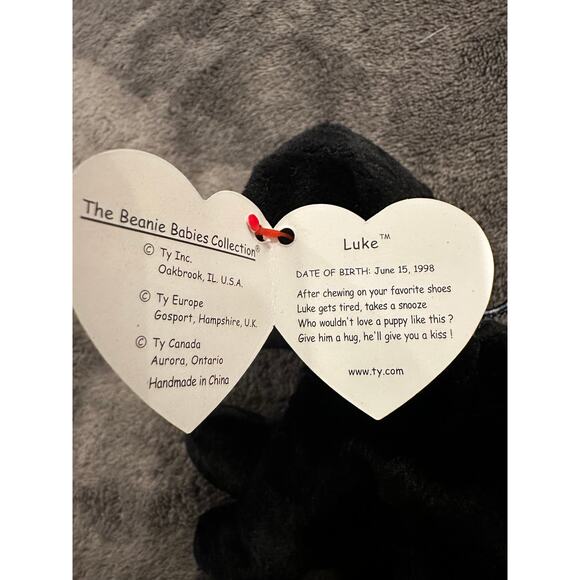 The Beanie Babies Collection®
© Ty Inc.
Oakbrook, IL. U.S.A.
© Ty Europe
Gosport, Hampshire, U.K.
© Ty Canada
Aurora, Ontario
Handmade in China
Luke™
DATE OF BIRTH: June 15, 1998
After chewing on your favorite shoes
Luke gets tired, takes a snooze
Who wouldn't love a puppy like this ?
Give him a hug, he'll give you a kiss !
www.ty.com